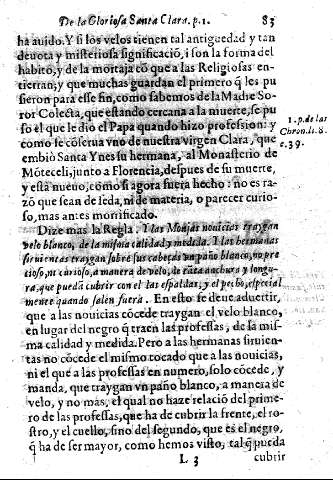 De la Gloriosa Santa Clara. p. 1. 83
ha auido. Y si los velos tienen tal antiguedad y tan
deuota y misteriosa significació, i son la forma del
habito, y de la mortaja cõ que a las Religiosas en-
tierran; y que muchas guardan el primero q̃ les pu
sieron para esse fin, como sabemos de la Madre So-
ror Colecta, que estando cercana a la muerte, se pu
so el que le dio el Papa quando hizo profession: y
como se cõserua vno de nuestra virgen Clara, que
embiò Santa Ynes su hermana, al Monasterio de
Mõteceli, junto a Florencia, despues de su muerte,
y està nueuo, como si agora fuera hecho: no es ra-
zõ que sean de seda, ni de materia, o parecer curio-
so, mas antes mortificado.
1. p. de las
Chron. li. 8.
c. 39.
Dize mas la Regla. Y las Monjas nouicias traygan
velo blanco, de la misma calidad y medida. Y las hermanas
siruientas traygan sobre sus cabeças vn paño blanco, no pre
cioso, ni curioso, a manera de velo, de tãta anchura y longu-
ra, que pueda cubrir con el las espaldas, y el pecho, especial
mente quando salen fuera. En esto se deue aduertir,
que a las nouicias cõcede traygan el velo blanco,
en lugar del negro q̃ traen las professas, de la mis-
ma calidad y medida. Pero a las hermanas siruien-
tas no cõcede el mismo tocado que a las nouicias,
ni el que a las professas en numero, solo cõcede, y
manda, que traygan vn paño blanco, a manera de
velo, y no mas; el qual no haze relació del prime-
ro de las professas, que ha de cubrir la frente, el ro-
stro, y el cuello, sino del segundo, que es el negro,
q̃ ha de ser mayor, como hemos visto, tal q̃ pueda
L 3 cubrir